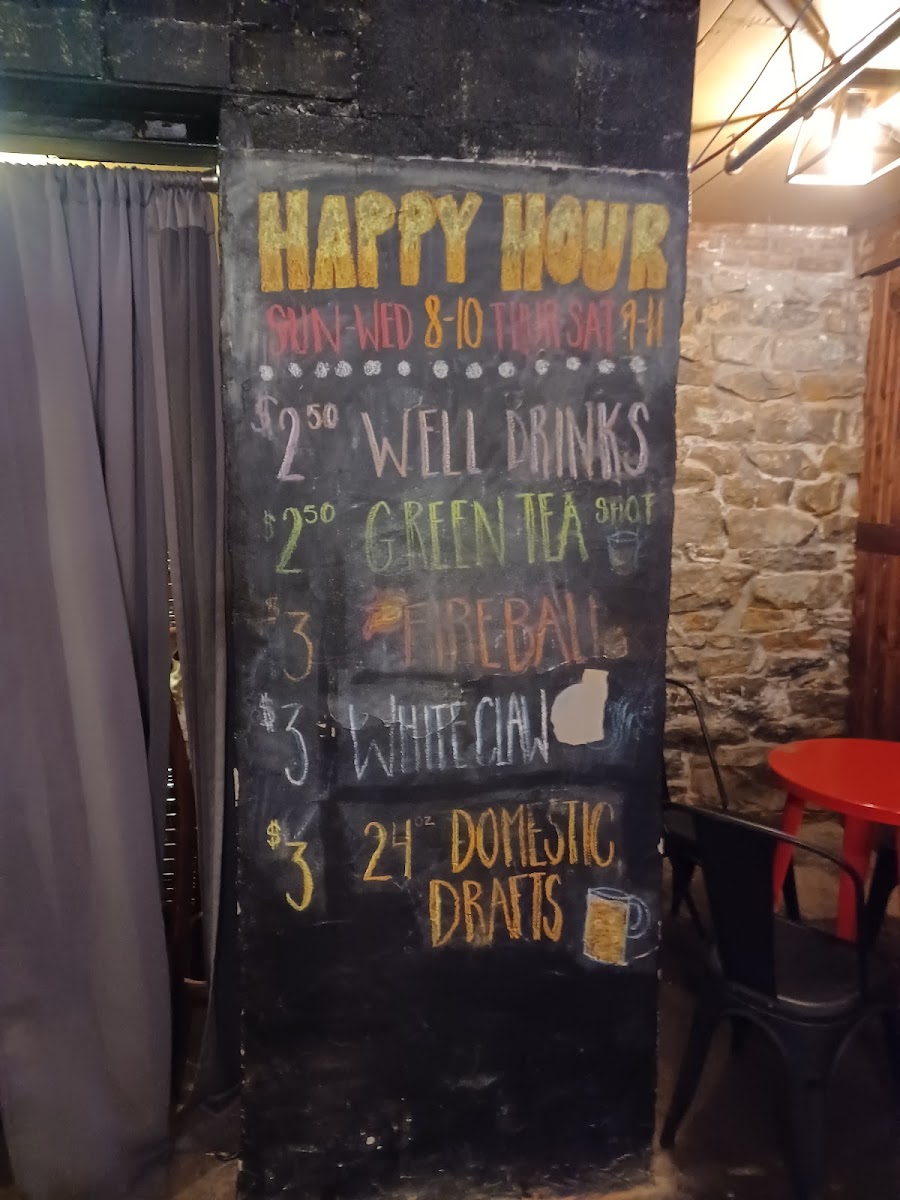 HAPPY HOUR
SUN-WED 8-10 THUR SAT 9-11
$2.50 WELL DRINKS
$2.50 GREEN TEA SHOT
$3 FIREBALL
$3 WHITE CLAW
$3 24 OZ DOMESTIC
DRAFTS